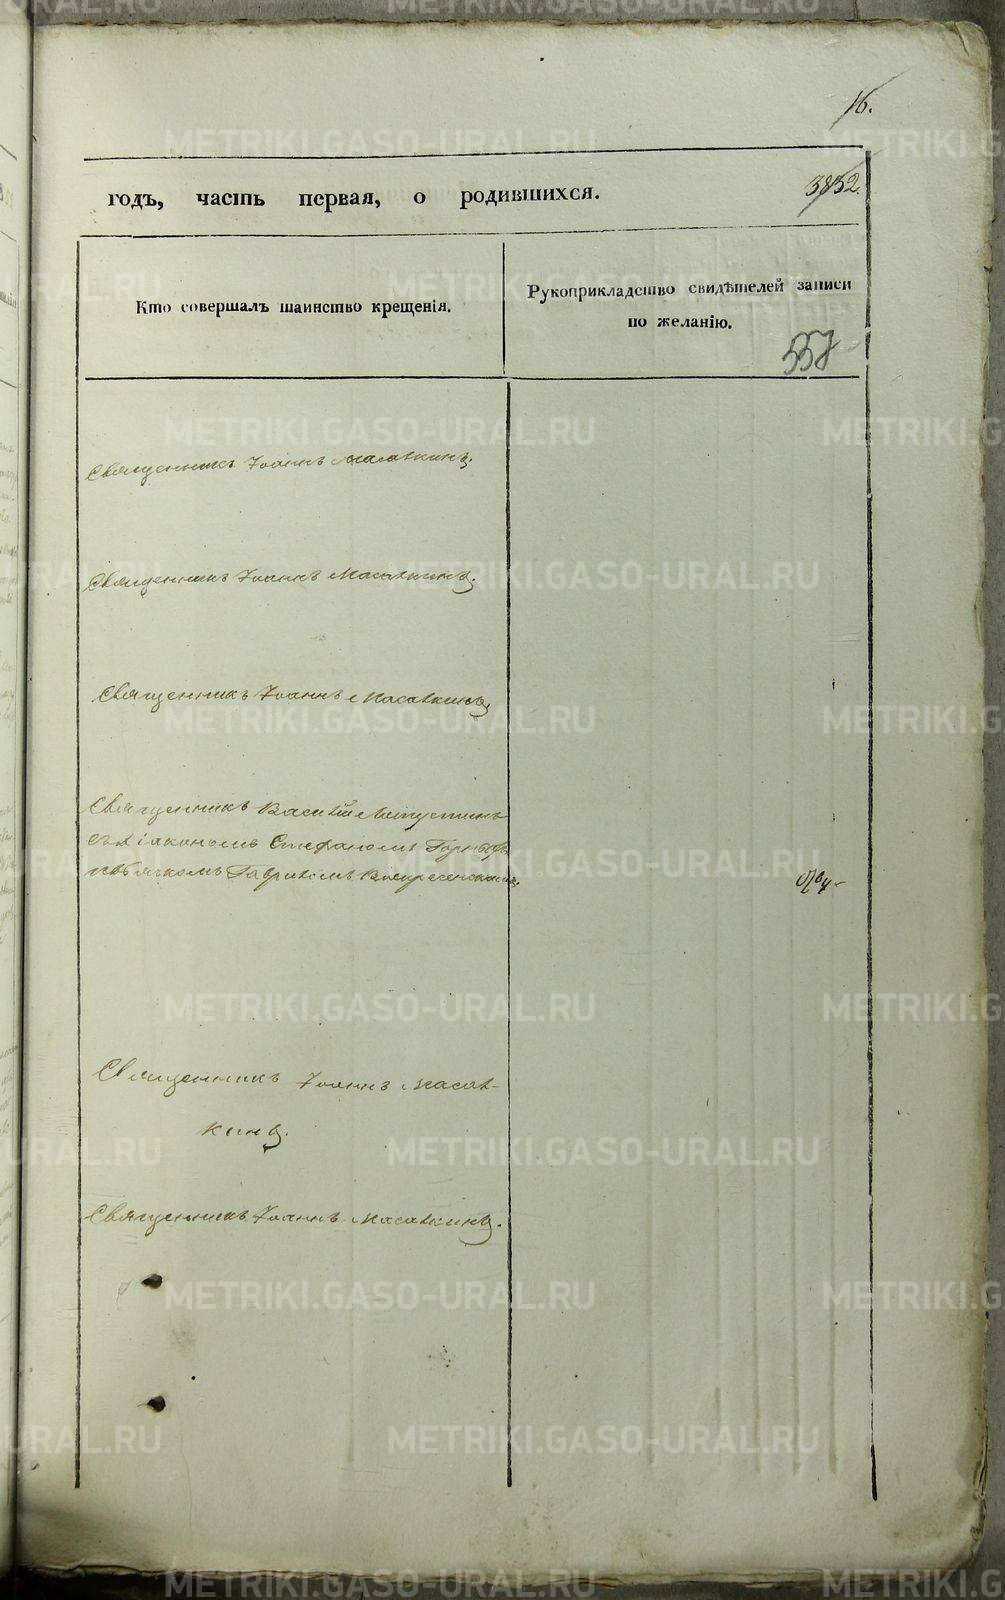 16.
годъ, часть первая, о родившихся. 3832.
Кто совершалъ таинство крещенія.
Рукоприкладство свидѣтелей записи
по желанію.
557
Священникъ Іоаннъ Масавкинъ.
Священникъ Іоаннъ Масавкинъ.
Священникъ Іоаннъ Масавкинъ.
Священникъ Василій
съ діакономъ Стефаномъ
Гавриломъ Воскресенскимъ.
Священникъ Іоаннъ Масав-
кинъ.
Священникъ Іоаннъ Масавкинъ.
METRIKI.GASO-URAL.RU